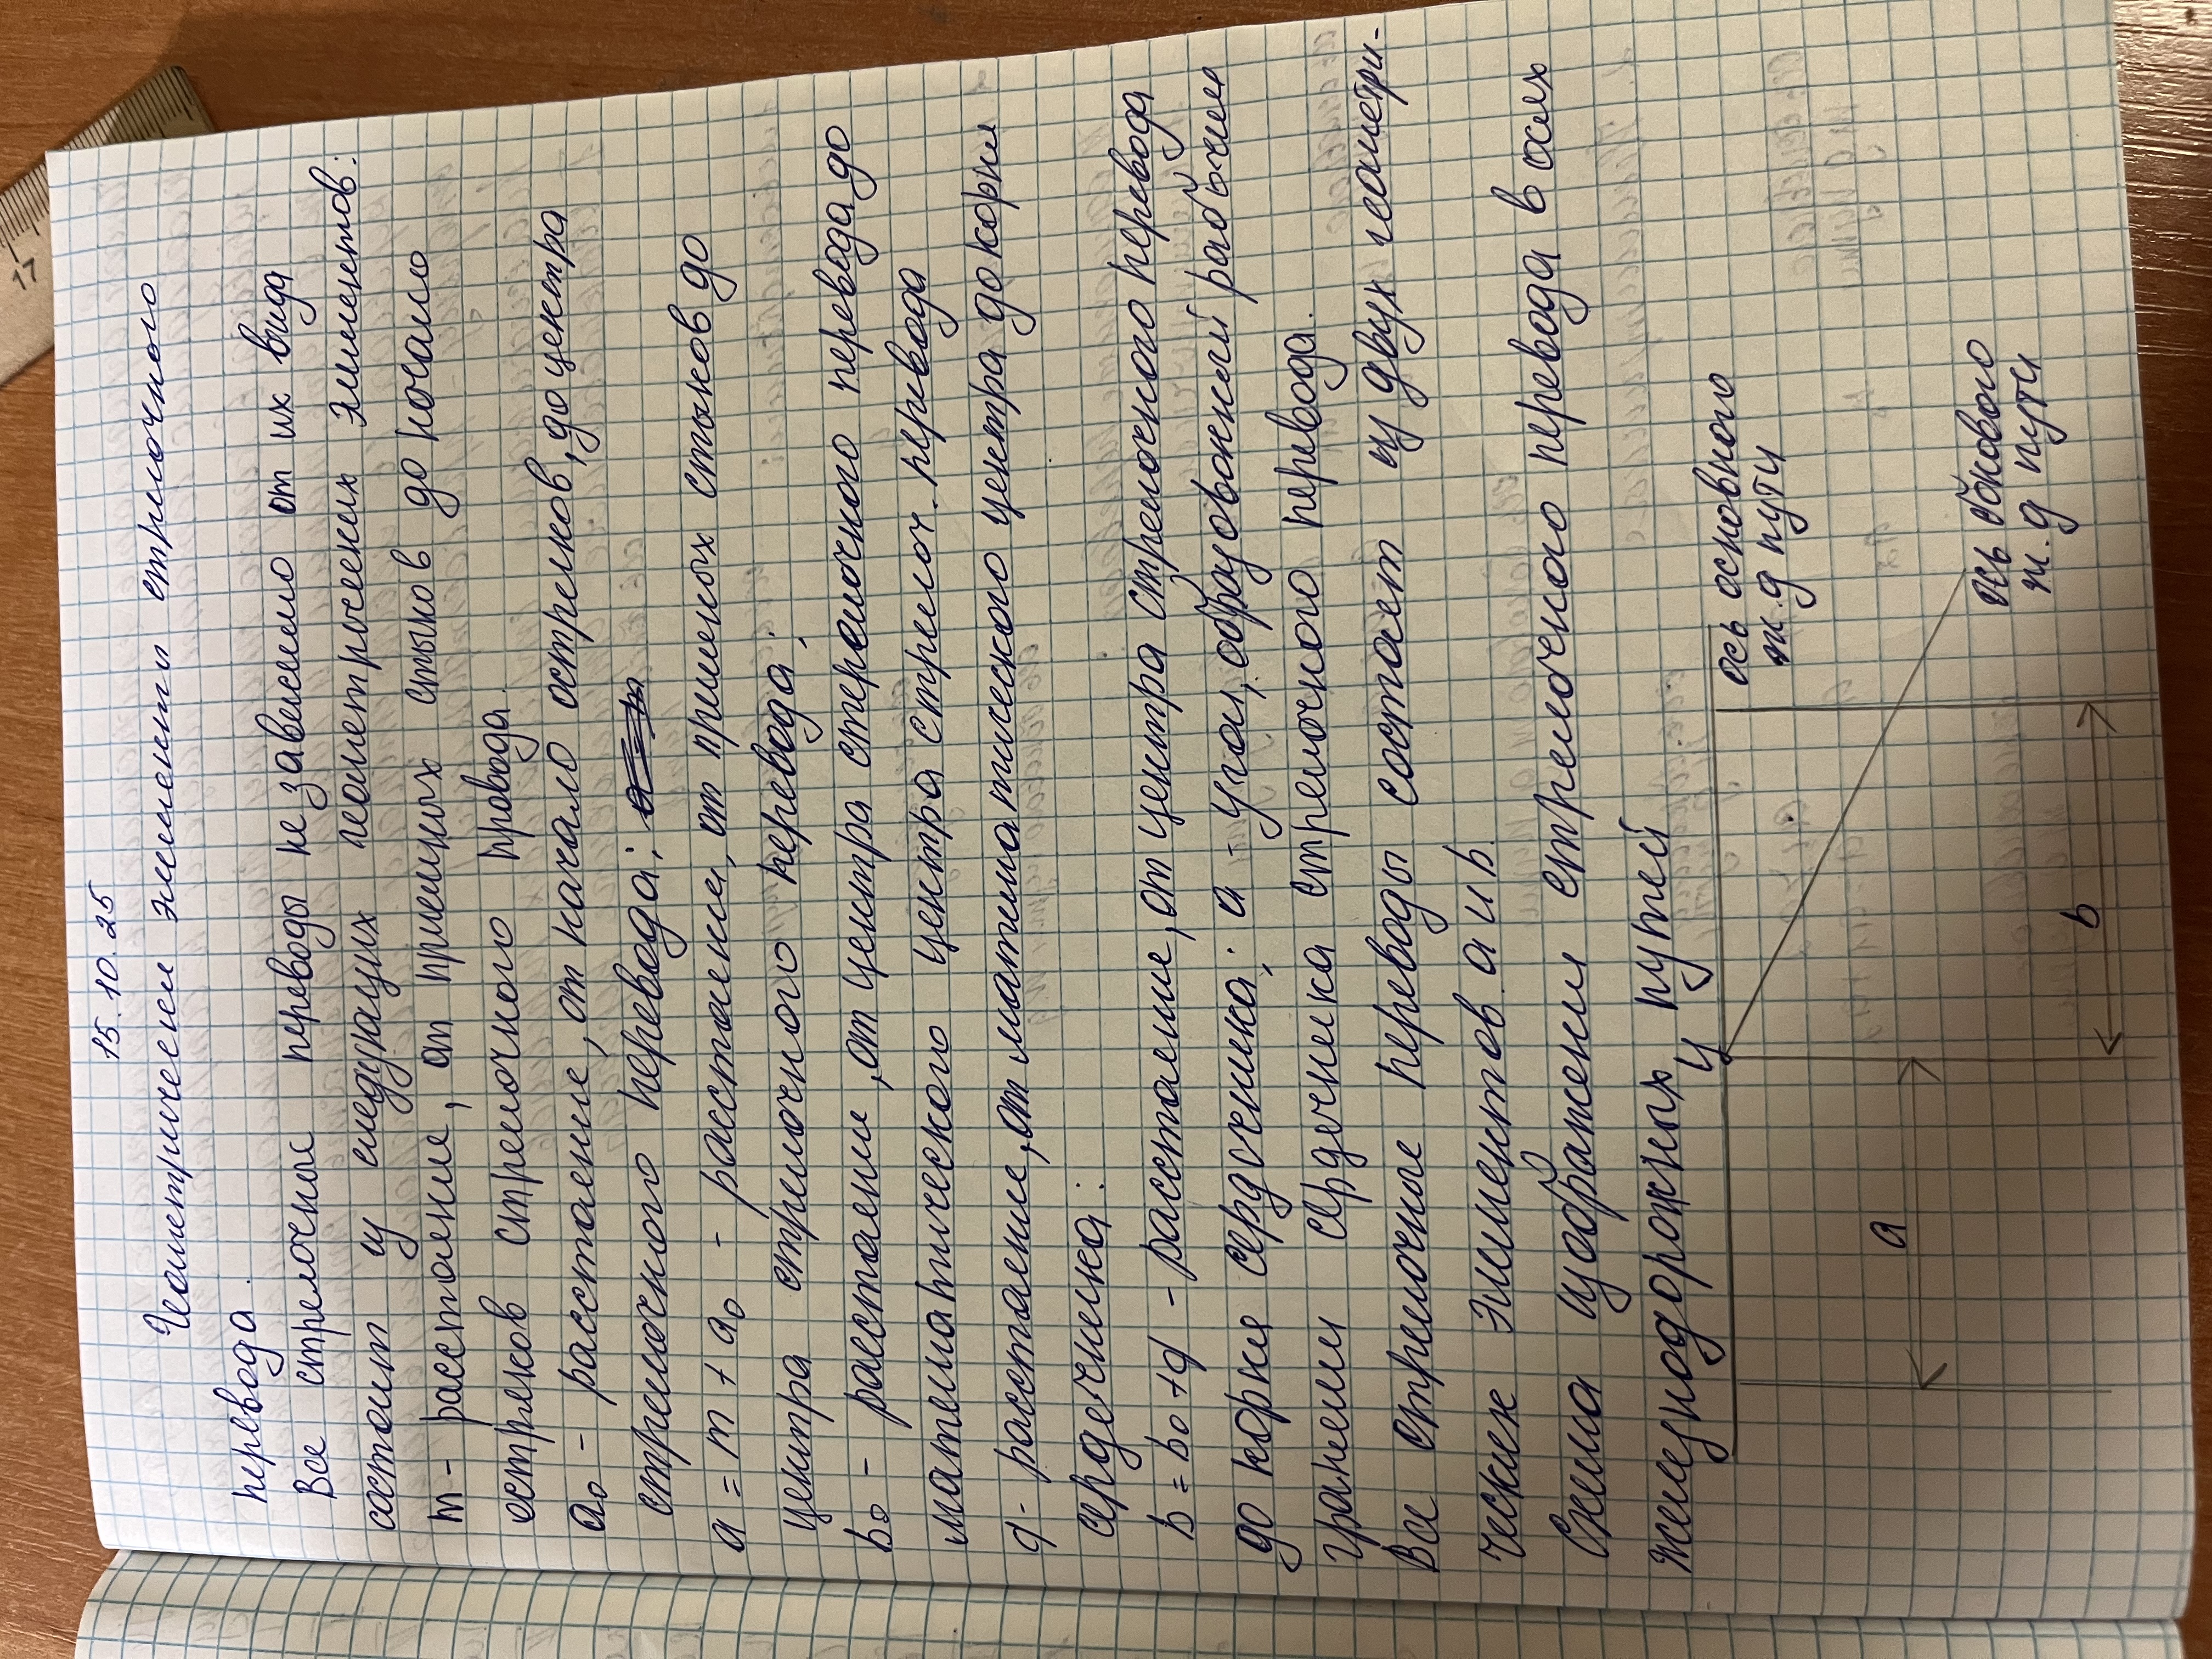 15.10.25
Геометрически элементы стрелочного
перевода.
Все стрелочные переводы не зависимо от их вида
состоит из следующих геометрических элементов:
m - расстояние, от приемных стыков до начало
остряков стрелочного провода.
a₀ - расстояние, от начало остряков, до центра
стрелочного перевода;
a = m + a₀ - расстояни, от приемных стыков до
центра стрелочного перевода;
b₀ - расстояни, от центра стрелочного перевода до
математического центра стрелоч. перевода
d - расстояние, от математического центра до корни
сердечника:
b = b₀ + d - расстояние, от центра стрелочного перевода
до корни сердечника; a - угол, образованний рабочим
гранеми сердечника стрелочного перевода.
Все стрелочные переводы состоит из двух геометри-
ческих элементов a и b.
Схема изображени стрелочного перевода в осях
железнодорожных путей
ц
ось основного
ж.д пути
ось бокового
ж.д пути
a
b
17